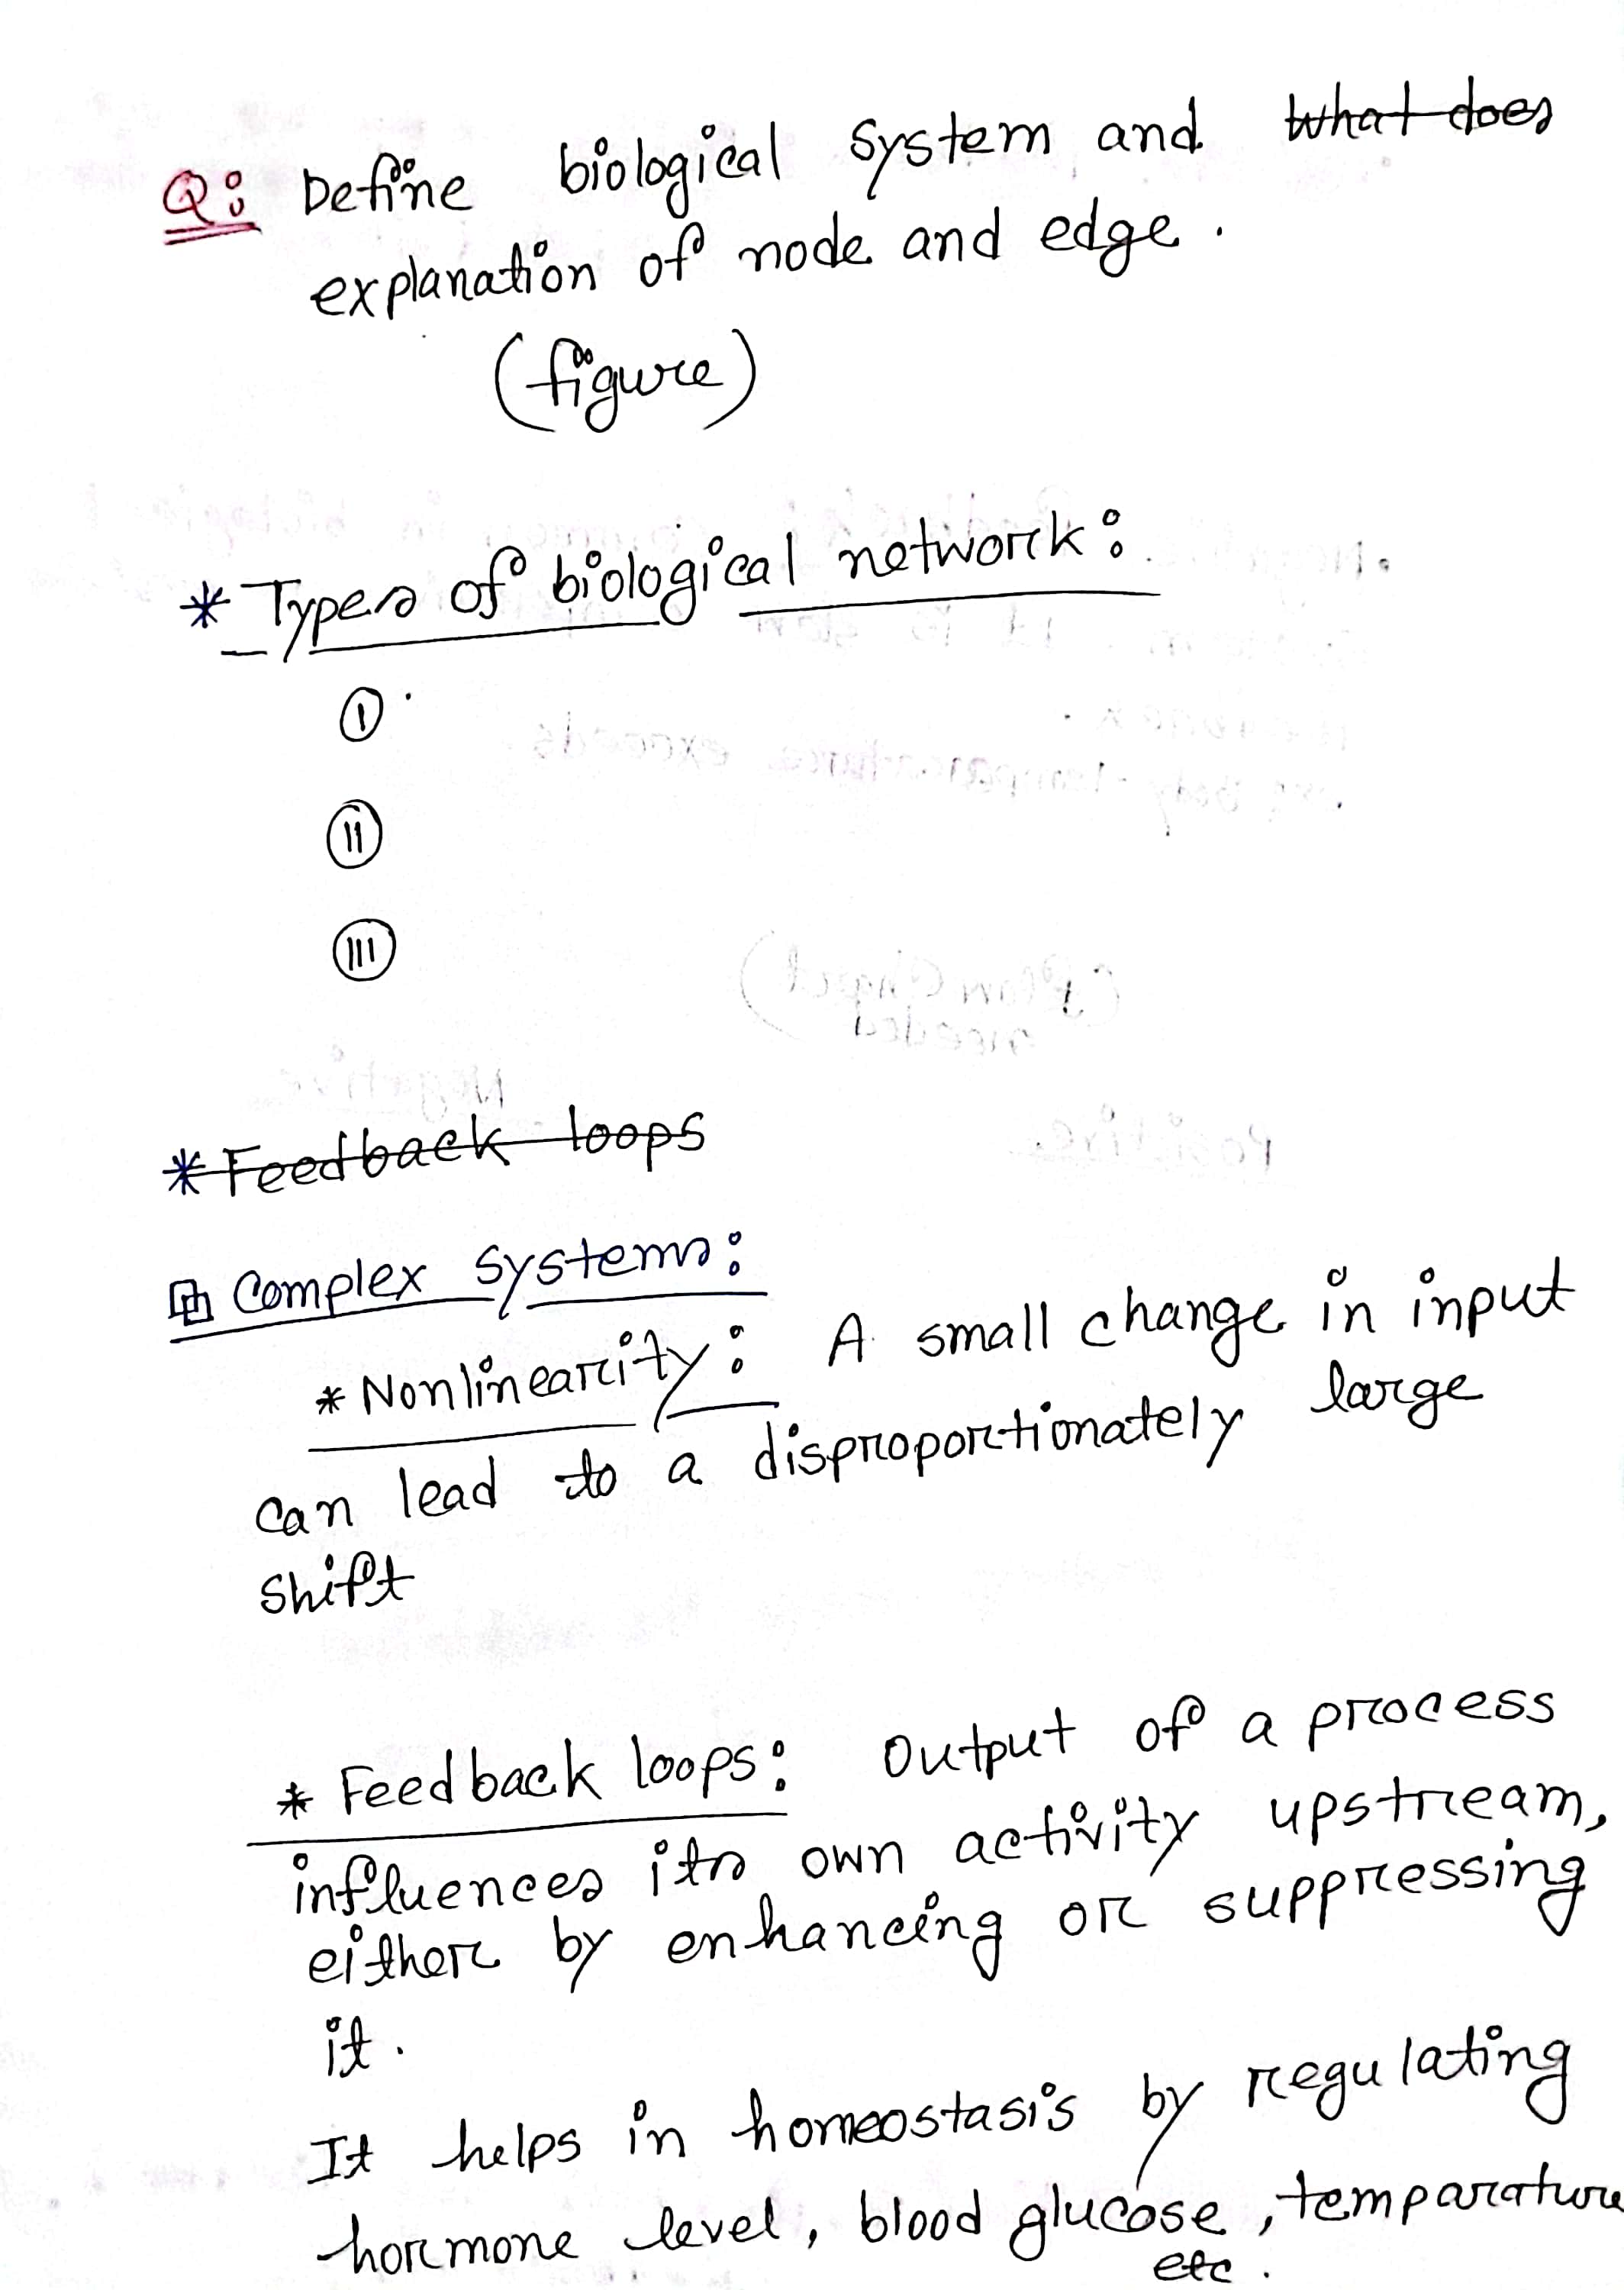 Q: Define biological system and What does
explanation of node and edge.
(figure)
* Types of biological network:
I
II
III
* Feedback loops
Complex systems:
* Nonlinearity: A small change in input
can lead to a disproportionately large
shift
* Feedback loops: Output of a process
influences its own activity upstream,
either by enhancing or suppressing
it.
It helps in homeostasis by regulating
hormone level, blood glucose, temparature
etc.